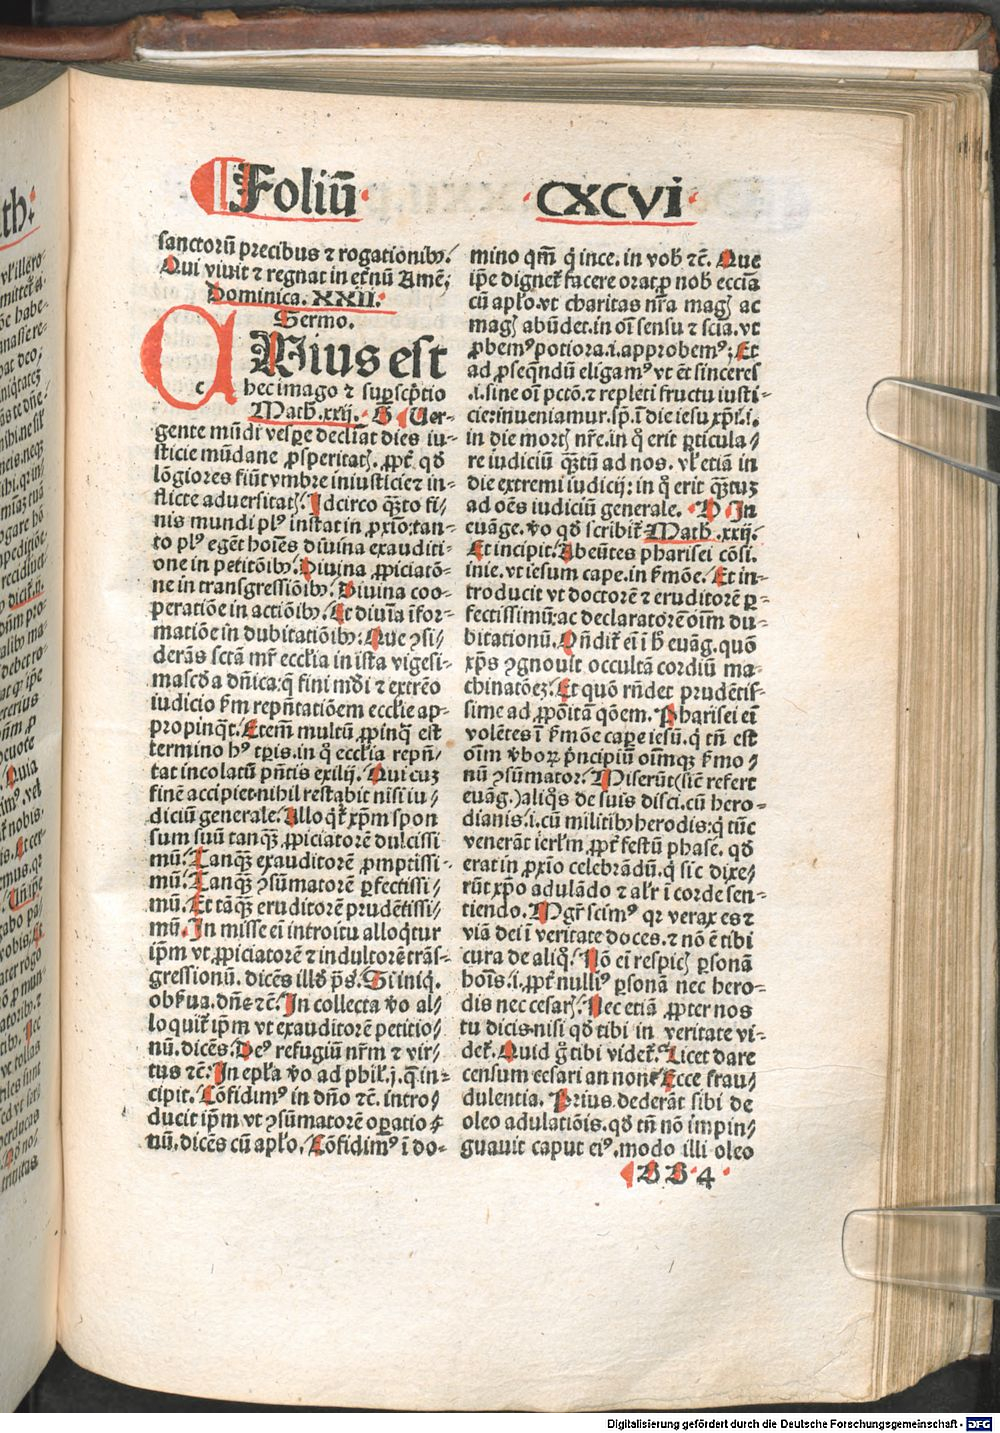 Foliū CXCVI
sanctorū precibus ⁊ rogationibꝰ.
Qui viuit ⁊ regnat in etnū Amē;
Dominica. XXII.
Sermo.
Uius est
c hec imago ⁊ supscptio
Math. xxij. Uer-
gente mūdi vespe decliat dies iu-
sticie mūdane ꝓsperitatꝭ. ꝓpt qd
lōgiores fiūt vmbre iniusticie ⁊ in-
flicte aduersitatꝭ. Idcirco qꝫto fi-
nis mundi plꝰ instat in ꝓxīo: tan-
to plꝰ egēt hoīes diuina exauditi-
one in petitōibꝰ. Diuina ꝓpiciatō-
ne in transgressiōibꝰ. Diuina coo-
peratiōe in actiōibꝰ. Et diuīa ifor-
matiōe in dubitatiōibꝰ. Que ꝯsi-
derās sctā mr eccłia in ista vigesi-
ma scda dñica: q̄ fini mdi ⁊ extrēo
iudicio km repñtatiōem eccłie ap-
propinqt. Etem multū ꝓpinq̄ est
termino hꝰ tpis. in q̄ eccłia repñ-
tat incolatū pñtis exilij. Qui cuz
finē accipiet. nihil restabit nisi iu/
diciū generale. Alloqt xpm spon
sum suū tanqꝫ ꝓpiciatorē dulcissi
mū. Tanqꝫ exauditorē ꝓmptissi-
mū. Tanqꝫ ꝯsūmatorē pfectissi/
mū. Et tāqꝫ eruditorē prudētissi/
mū. In misse ei introitu alloqtur
ipm vt ꝓpiciatorē ⁊ indultorē trās-
gressionū. dicēs illd ps. Si iniq.
obkua. dñe ⁊c. In collecta vo al/
loquit ipm vt exauditorē petitio/
nū. dicēs. Deꝰ refugiū nrm ⁊ vir/
tus ⁊c. In epła vo ad phil. j. q̄ in-
cipit. Cōfidimꝰ in dño ⁊c. intro/
ducit ipm vt ꝯsūmatorē opatio
nū. dicēs cū apło. Cōfidimꝰ i do-
mino qm̄ q̄ ince. in vob ⁊c. Que
ipe dignet facere orat p nob ecciā
cū apło. vt charitas nra magꝭ ac
magꝭ abūdet. in oī sensu ⁊ scia. vt
ꝓbemꝰ potiora. i. approbemꝰ; Et
ad ꝓseqndū eligamꝰ vt et sinceres
.i. sine oi pctō. ⁊ repleti fructu iusti-
cie: inueniamur. sp. i die iesu xpi. i.
in die mortꝭ nre. in q̄ erit pticula/
re iudiciū qꝫtū ad nos. vł etiā in
die extremi iudicij: in q̄ erit qꝫtuꝫ
ad oēs iudiciū generale. D In
euāge. vo qd scribit Math. xxij.
Et incipit. Abeūtes pharisei cōsi.
inie. vt iesum cape. in kmōe. Et in-
troducit vt doctorē ⁊ eruditorē p-
fectissimū: ac declaratorē oim du-
bitationū. Oñdit ei i h euāg. quō
xps ꝯgnouit occultā cordiū ma-
chinatōeꝫ. Et quō rñdet prudētis-
sime ad ꝓpōitā qōem. Pharisei ei
volētes i kmōe cape iesū. q̄ tñ est
oim vboꝝ pncipiū oimqꝫ kmo/
nū ꝯsūmator. Miserūt (sic refert
euāg.) aliq̄s de suis disci. cū hero-
dianis. i. cū militibꝰ herodis: q̄ tūc
venerāt ierłm. ꝓpt festū phase. qd
erat in ꝓxio celebrādū. q̄ sic dixe/
rūt xpo adulādo ⁊ alr i corde sen-
tiendo. Mgr scimꝰ qr verax es ⁊
viā dei i veritate doces. ⁊ nō ē tibi
cura de aliq̄. Nō ei respicꝭ psonā
hois. i. ꝓpt nulliꝰ psonā nec hero-
dis nec cesarꝭ. Nec etiā ꝓpter nos
tu dicis. nisi qd tibi in veritate vi-
det. Quid g tibi videt. Licet dare
censum cesari an non? Ecce frau/
dulentia. Prius dederāt sibi de
oleo adulatiōis. qd tñ nō impin/
guauit caput eiꝰ. modo illi oleo
BB 4
Digitalisierung gefördert durch die Deutsche Forschungsgemeinschaft - DFG